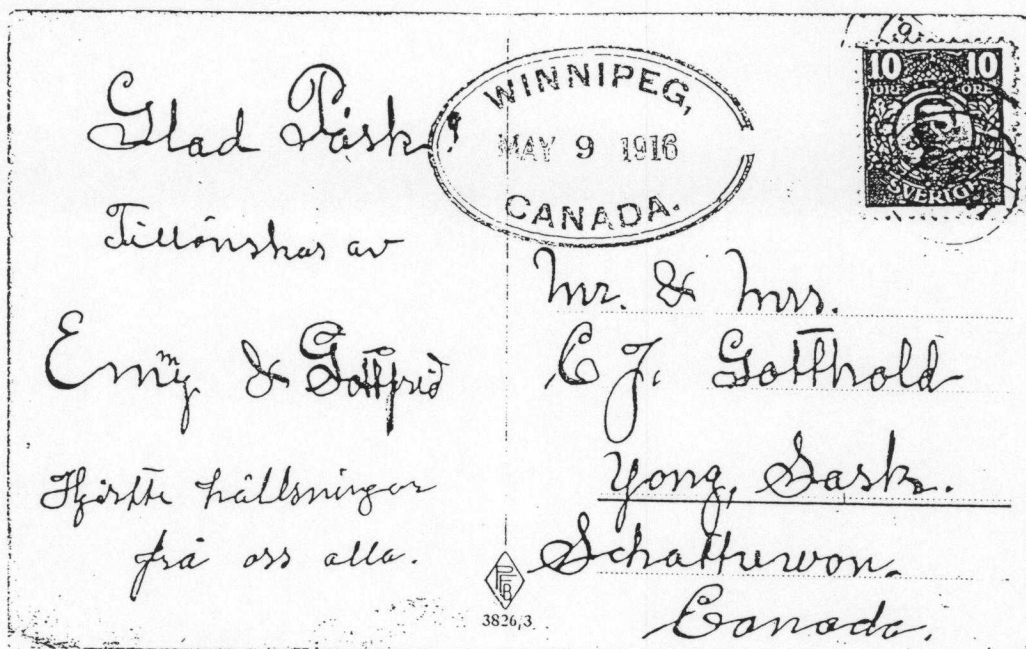 Glad Påsk!
Tillönskas av
Emmy & Gottfrid
Hjärtte hällsningar
frå oss alla.
WINNIPEG,
MAY 9 1916
CANADA.
10 10
ÖRE ÖRE
SVERIGE
Mr. & Mrs.
C J. Gotthold
Yong, Sask.
Schattuwon.
Canada.
PFB
3826,3